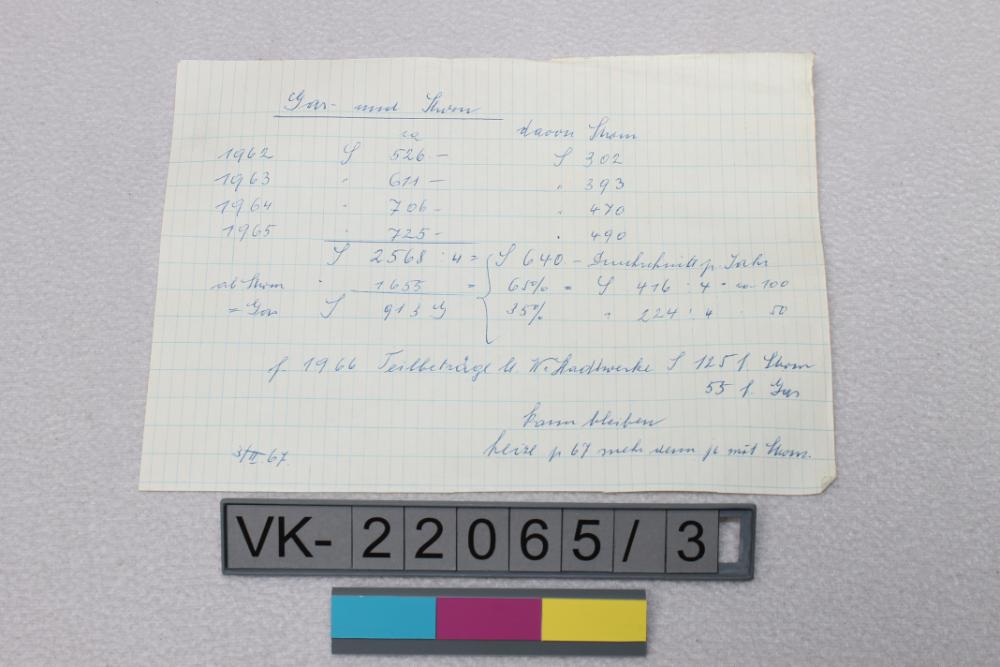 Gas- und Strom
ca davon Strom
1962 S 526 – S 302
1963 " 611 – " 393
1964 " 706 – " 470
1965 " 725 – " 490
S 2568 : 4 = S 640 – Durchschnitt p. Jahr
ab Strom " 1655 = 65% = S 416 : 4 = ca. 100
= Gas S 913 35% " 224 : 4 " 50
f. 1966 Teilbeträge lt. W. Stadtwerke S 125 f. Strom
55 f. Gas
kann bleiben
heize p 67 mehr denn je mit Strom.
3/II 67.
VK-22065/3